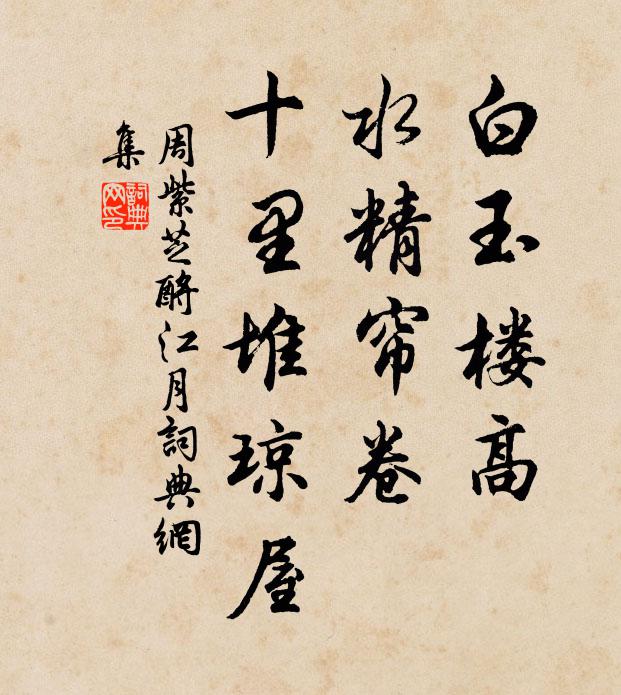 白玉楼高
水精帘卷
十里堆琼屋
周紫芝酹江月詞典網
集
詞典網印